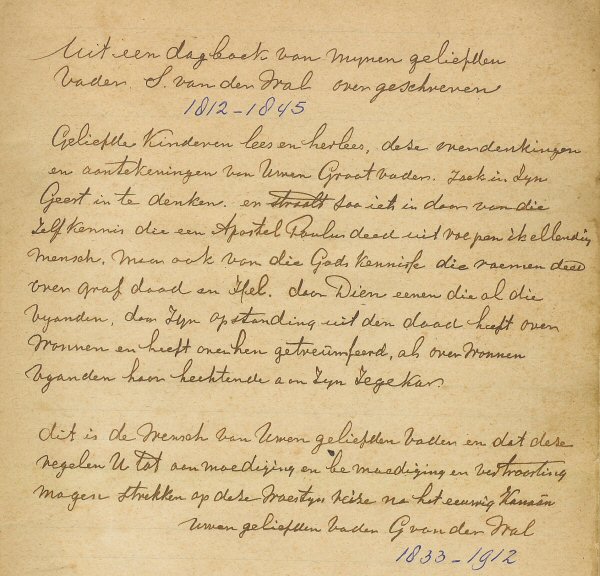 Uit een dagboek van mynen geliefden
Vader S. van der Wal overgeschreven
1812-1845
Geliefde Kinderen lees en herlees, deze overdenkingen
en aantekeningen van Uwen Grootvader. Zoek in Zyn
Geest in te denken. en straalt zoo iets in door van die
Zelfkennis die een Apostel Paulus deed uit roepen ik ellendig
mensch. Maar ook van die Gods Kennisse die roemen deed
over graf dood en Hel. door Dien eenen die al die
Vyanden, door Zyn opstanding uit den dood heeft over
Wonnen en heeft over hen getreumfeerd, als over Wonnen
Vyanden hoor hechtende aan Zyn Zegekar.
dit is de Wensch van Uwen geliefden Vader en dat deze
regelen U tot aanmoediging en bemoediging en vertroosting
mogen strekken op deze Woestyn reize na het eeuwig Kanaän
Uwen geliefden Vader G van der Wal
1833-1912